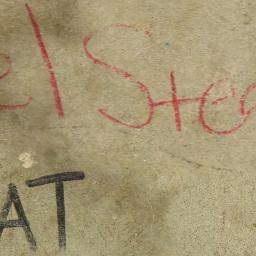 el Stee
AT